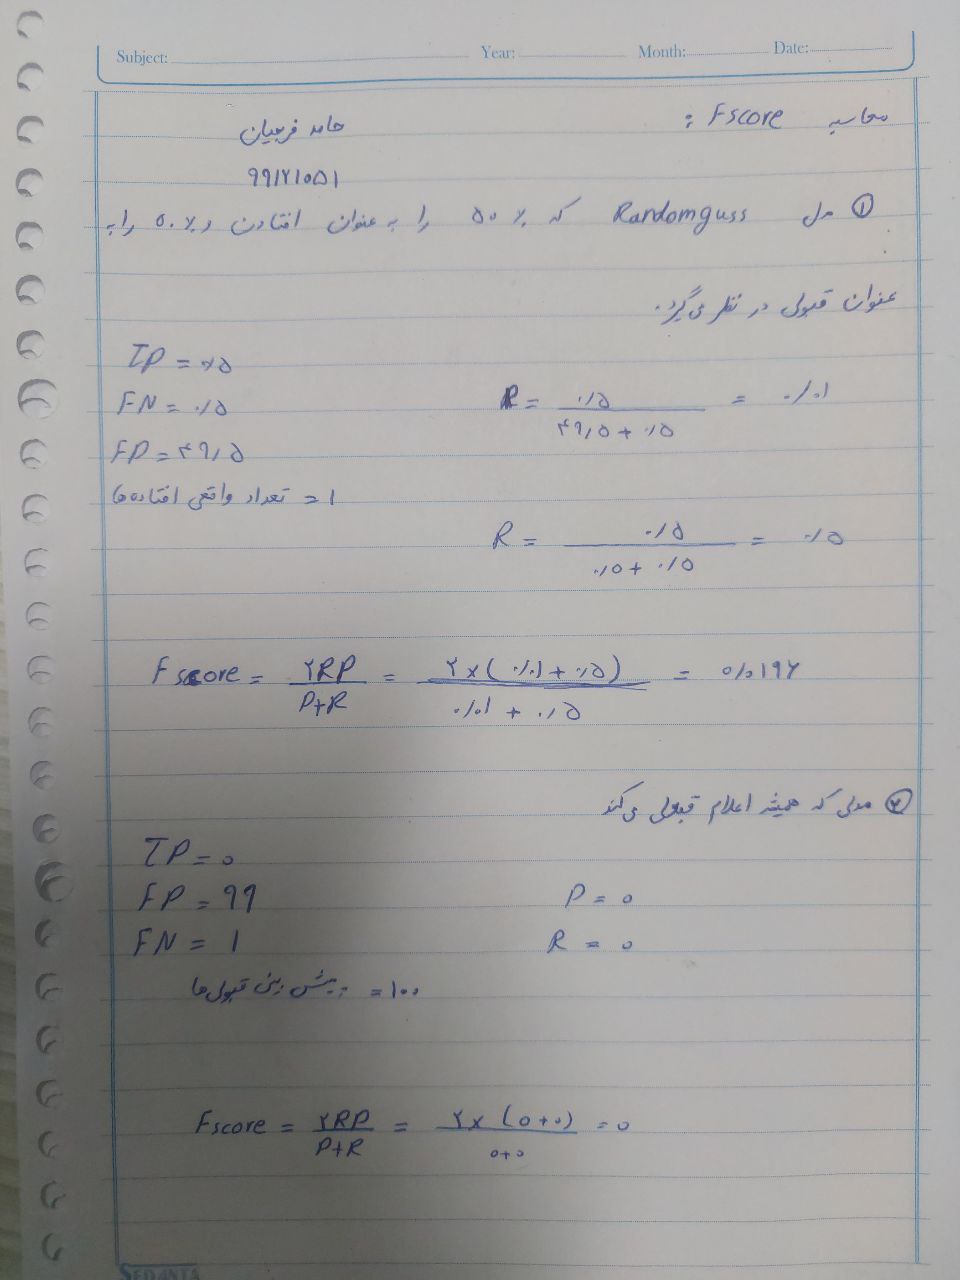 Subject: Year: Month: Date:
محاسبه Fscore :
حامد فرجیان
۹۹۱۲۱۰۵۱
① مدل Randomguss که ٪۵۰ را به عنوان افتادن و ٪۵۰ را به
عنوان قبولی در نظر می‌گیرد.
TP = ۰/۵
FN = ۰/۵
R = ۰/۵ / ۴۹/۵ + ۰/۵ = ۰/۰۱
FP = ۴۹/۵
۱ = تعداد واقعی افتاده‌ها
R = ۰/۵ / ۰/۵ + ۰/۵ = ۰/۵
Fscore = ۲RP / P+R = ۲ × (۰/۰۱ + ۰/۵) / ۰/۰۱ + ۰/۵ = ۰/۰۱۹۶
② مدلی که همیشه اعلام قبولی می‌کند
TP = ۰
FP = ۹۹
P = ۰
FN = ۱
R = ۰
۱۰۰ = پیش بینی قبولی‌ها
Fscore = ۲RP / P+R = ۲ × (۰+۰) / ۰+۰ = ۰
SEDANTA